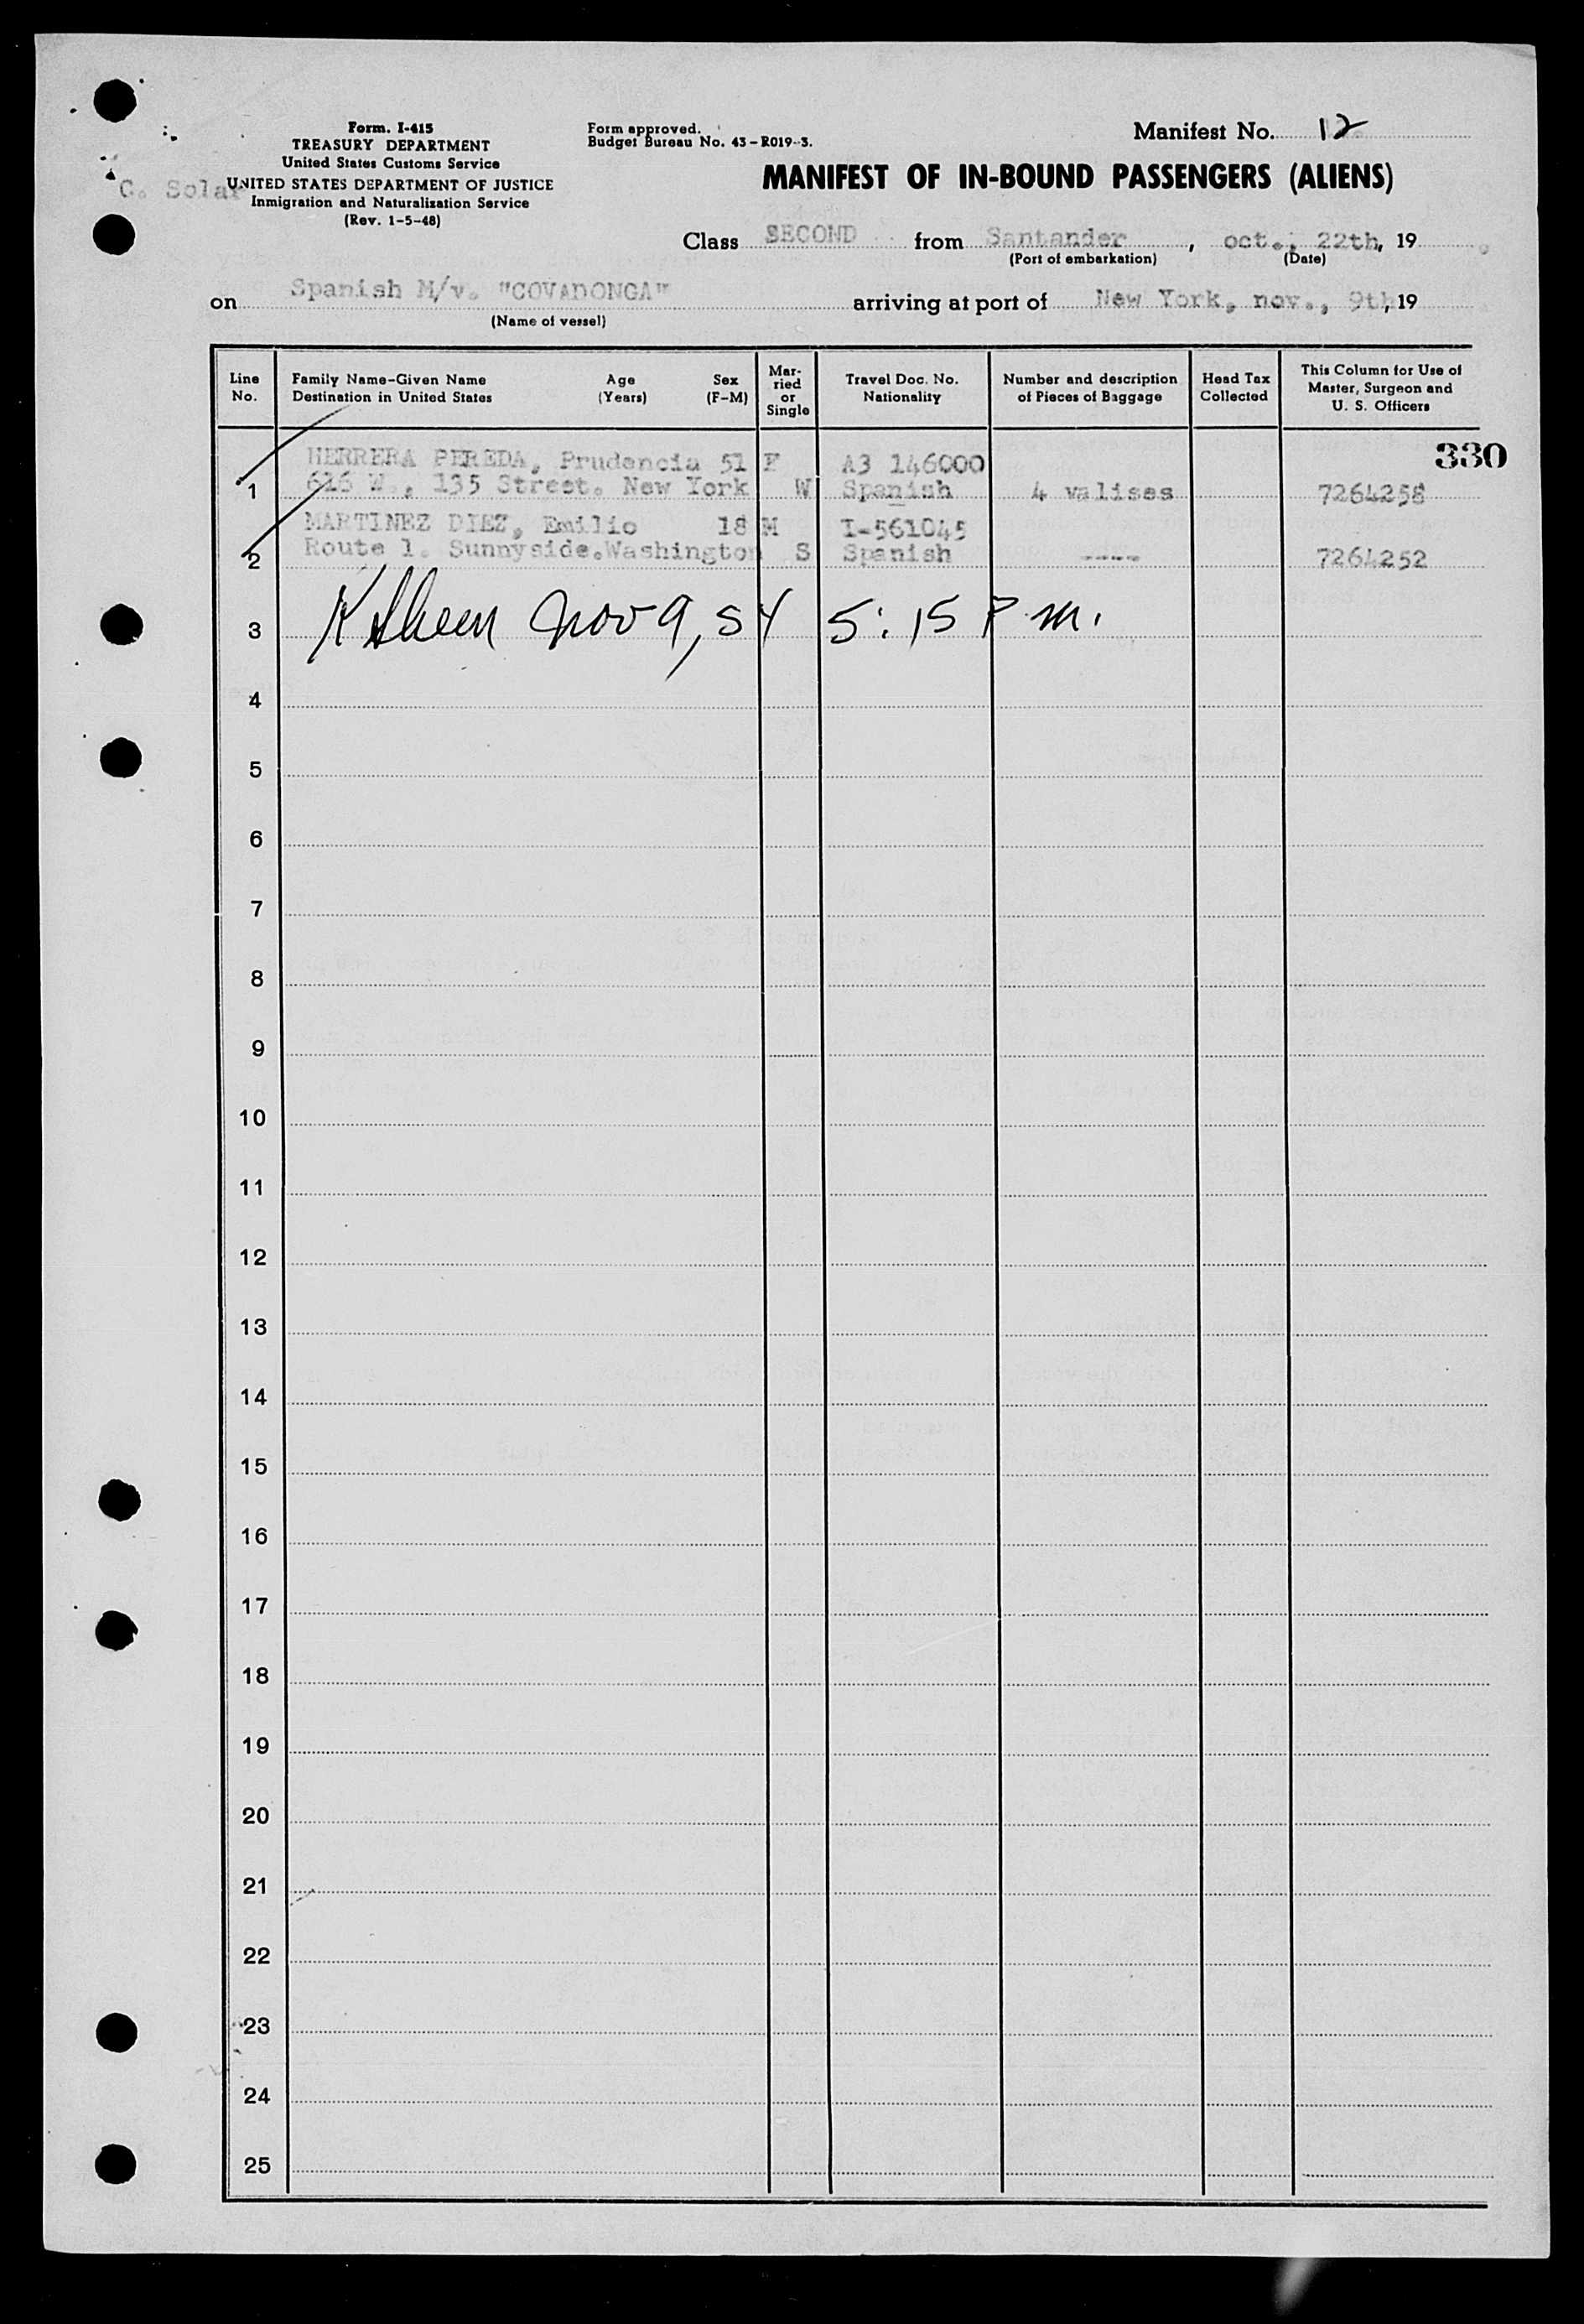 Form. I-415
TREASURY DEPARTMENT
United States Customs Service
UNITED STATES DEPARTMENT OF JUSTICE
Inmigration and Naturalization Service
(Rev. 1-5-48)
C. Solar
Form approved.
Budget Bureau No. 43-R019-3.
Manifest No. 12
MANIFEST OF IN-BOUND PASSENGERS (ALIENS)
Class SECOND from Santander, oct., 22th, 19
(Port of embarkation) (Date)
on Spanish M/v. "COVADONGA" arriving at port of New York, nov., 9th, 19
(Name of vessel)
Line No. Family Name-Given Name Destination in United States Age (Years) Sex (F-M) Mar-ried or Single Travel Doc. No. Nationality Number and description of Pieces of Baggage Head Tax Collected This Column for Use of Master, Surgeon and U. S. Officers
330
HERRERA PEREDA, Prudencia 51 F A3 146000
1 616 W., 135 Street. New York W Spanish 4 valises 7264258
MARTINEZ DIEZ, Emilio 18 M I-561045
2 Route 1. Sunnyside.Washington S Spanish ---- 7264252
3 Nov 9, 54 5:15 P.m.
4
5
6
7
8
9
10
11
12
13
14
15
16
17
18
19
20
21
22
23
24
25